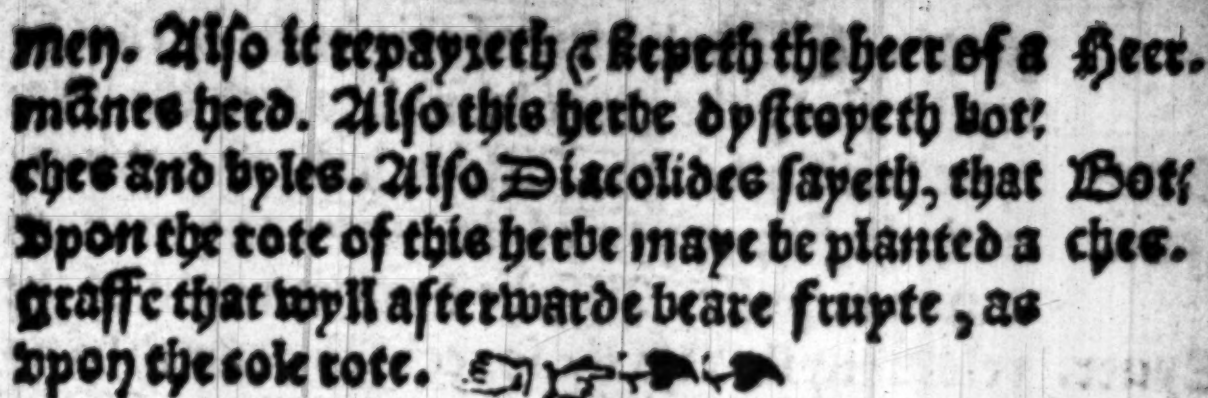 men. Also it repayreth & kepeth the heer of a Heer.
mānes heed. Also this herbe dystroyeth bot⸗
ches and byles. Also Diacolides sayeth, that Bot⸗
vpon the rote of this herbe maye be planted a ches.
graffe that wyll afterwarde beare fruyte, as
vpon the cole rote.